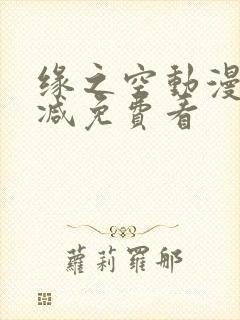 缘之空動漫
減免費看
蘿莉羅郍